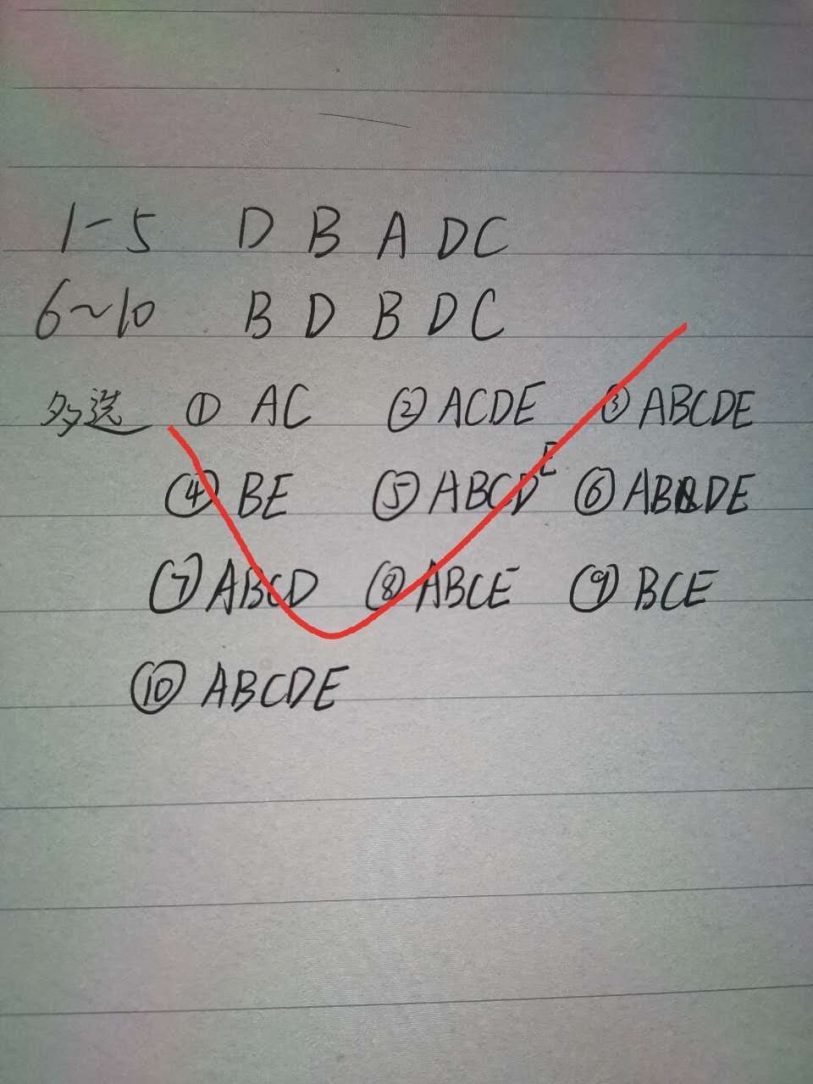 1-5 D B A DC
6~10 B D B D C
多选 ① AC ② ACDE ③ ABCDE
④ BE ⑤ ABCDE ⑥ ABDE
⑦ ABCD ⑧ ABCE ⑨ BCE
⑩ ABCDE